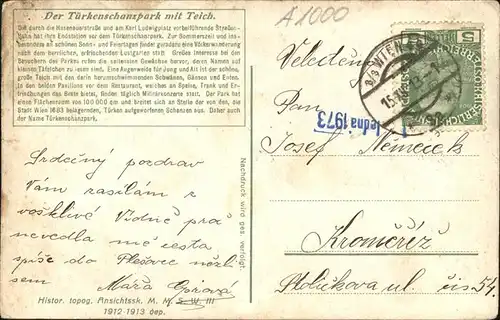 Der Türkenschanzpark mit Teich.
Die durch die Hasenauerstraße und am Karl Ludwigplatz vorbeiführende Straßen-
bahn hat ihre Endstation vor dem Türkenschanzpark. Zur Sommerzeit und ins-
besondere an schönen Sonn- und Feiertagen findet geradezu eine Völkerwanderung
nach dem herrlichen, erfrischenden Lustgarten statt. Großes Interesse bei den
Besuchern des Parkes rufen die seltensten Gewächse hervor, deren Namen auf
kleinen Täfelchen zu lesen sind. Eine Augenweide für Jung und Alt ist der schöne,
große Teich mit den darin herumschwimmenden Schwänen, Gänsen und Enten.
In den beiden Pavillons vor dem Restaurant, welches an Speise, Trank und Er-
frischungen das Beste bietet, finden täglich Militärkonzerte statt. Der Park hat
einen Flächenraum von 100 000 qm und breitet sich an Stelle der von den, die
Stadt Wien 1683 belagernden, Türken aufgeworfenen Schanzen aus. Daher auch
der Name Türkenschanzpark.
A 1000
5
WIEN
Velectěný
Pan
jedna 1973
Josef Němeček
Kroměříž
ul. čís 54.
Srdečný pozdrav
Vám zasílám z
vošklivé Vídně
nevedla mě cesta
spíše do nežli
sem Máňa
Nachdruck wird ges. verfolgt.
Histor. topog. Ansichtssk. M. M. S. W. III
1912-1913 dep.